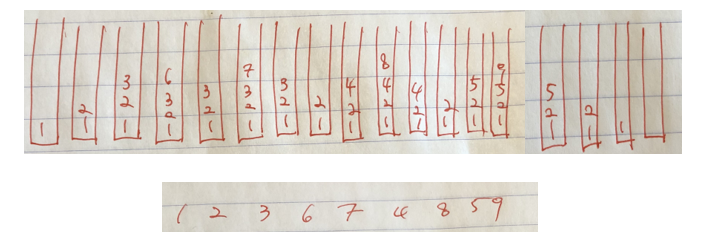 1
2 1
3 2 1
6 3 2 1
3 2 1
7 3 2 1
3 2 1
2 1
4 2 1
8 4 2 1
4 2 1
2 1
5 2 1
9 5 2 1
5 2 1
2 1
1
1 2 3 6 7 4 8 5 9